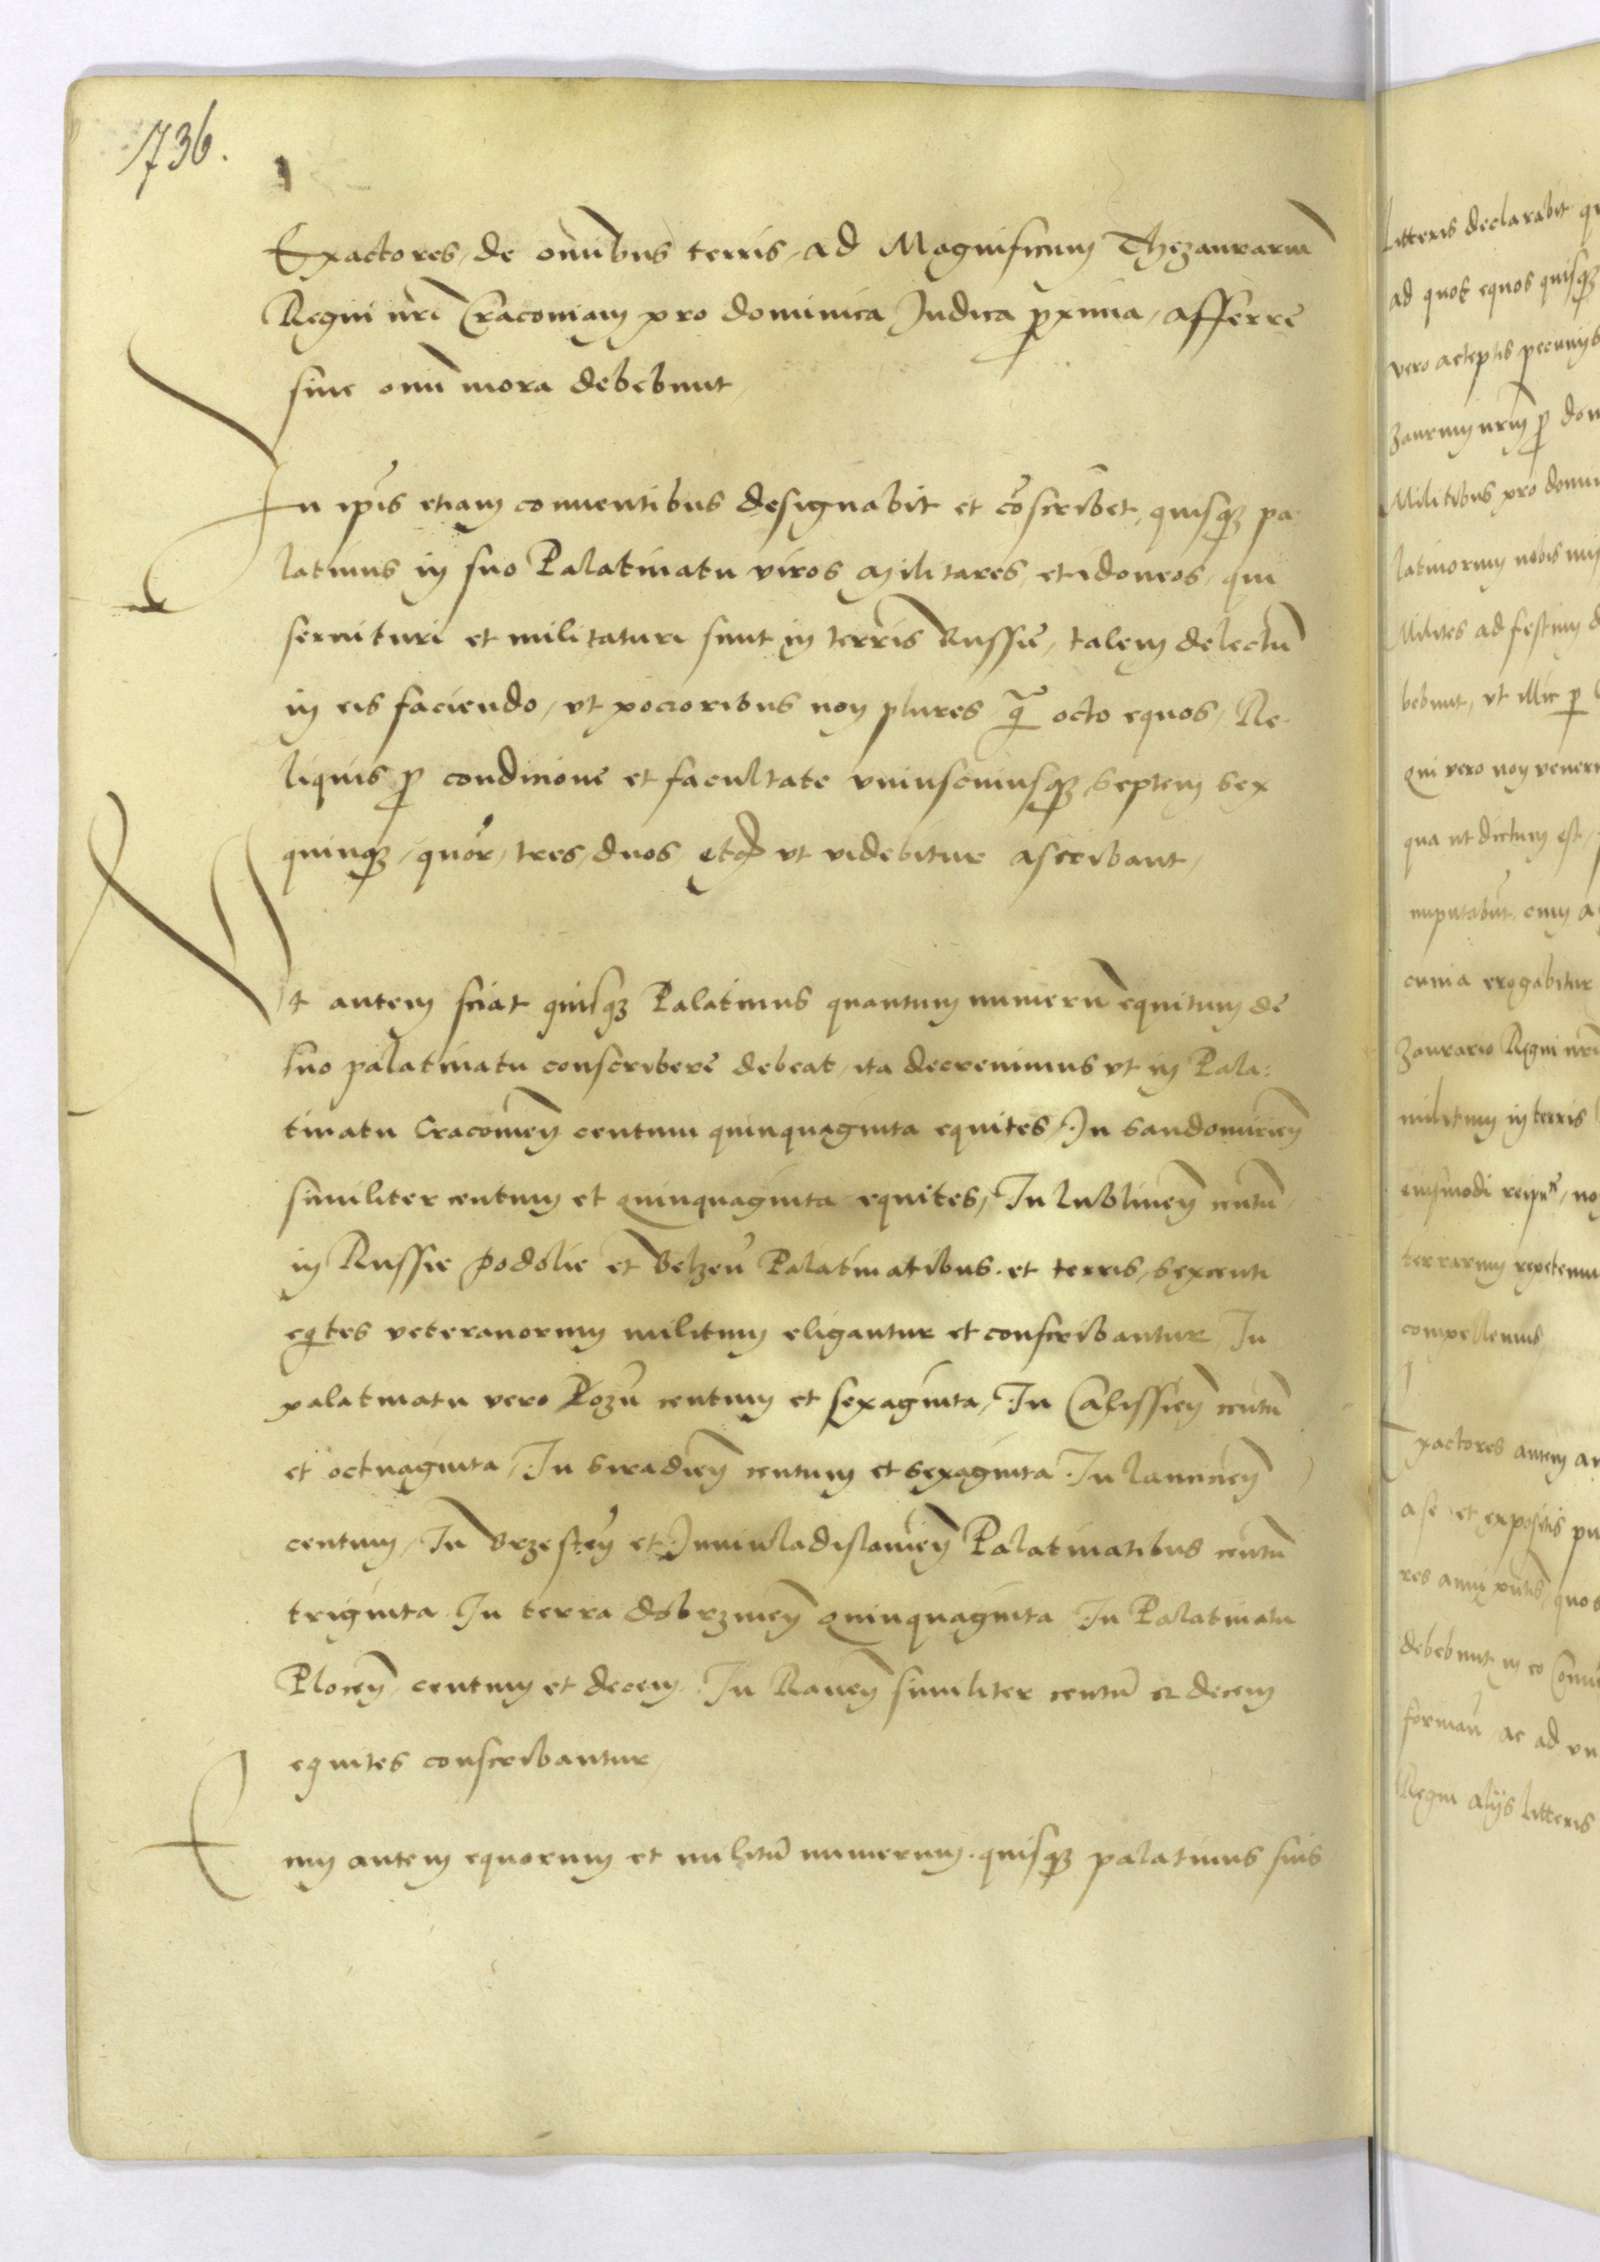 736.
Exactores, de omnibus terris, ad Magnificum Thezaurarium
Regni nrī Cracoviam pro dominica Judica proxima, afferre
sine omni mora debebunt,
In ip̄is etiam conventibus designabit et cōscribet, quisq̄ pa
latinus in suo Palatinatu viros militares, et idoneos, qui
servituri et militaturi sunt in terris Russie, talem delectū
in eis faciendo, vt pocioribus non plures q̄ octo equos, Re
liquis p̄ condicione et facultate vniuscuiusq̄, septem sex
quinq̄, quor, tres, duos, etc̄ vt videbitur ascribant,
Vt autem sciat quisq̄ Palatinus quantum numerū equitum de
suo palatinatu conscribere debeat, ita decrevimus vt in Pala:
tinatu Cracovien̄ centum quinquaginta equites, In Sandomirien̄
similiter centum et quinquaginta equites, In Lublinen̄ centū,
in Russie podolie et Belzen̄ Palatinatibus et terris, sexcenti
eq̄tes veteranorum militum eligantur et conscribantur, In
palatinatu vero Pozn̄ centum et sexaginta, In Calissien̄ centū
et octuaginta, In Siradien̄ centum et sexaginta In Lancicien̄
centum, In Brzesten̄ et Juniwladislavien̄ Palatinatibus centū
triginta In terra dobrzinen̄ quinquaginta In Palatinatu
Plocen̄ centum et decem In Raven̄ similiter centū et decem
equites conscribantur,
Eum autem equorum et militū numerum quisq̄ palatinus suis
litteris declarabit
ad quot equos quisq̄
vero acceptis pecunijs
Militibus pro
latinorum nobis
Milites ad festum
bebunt, vt illic
Qui vero non
qua ut dictum est
cunia erogabitur
zaurario Regni nrī
militum in terris
eiusmodi
terrarum
compellemus,
Exactores autem
a se et expositis
debebunt in eo
ac ad
Regni alijs litteris